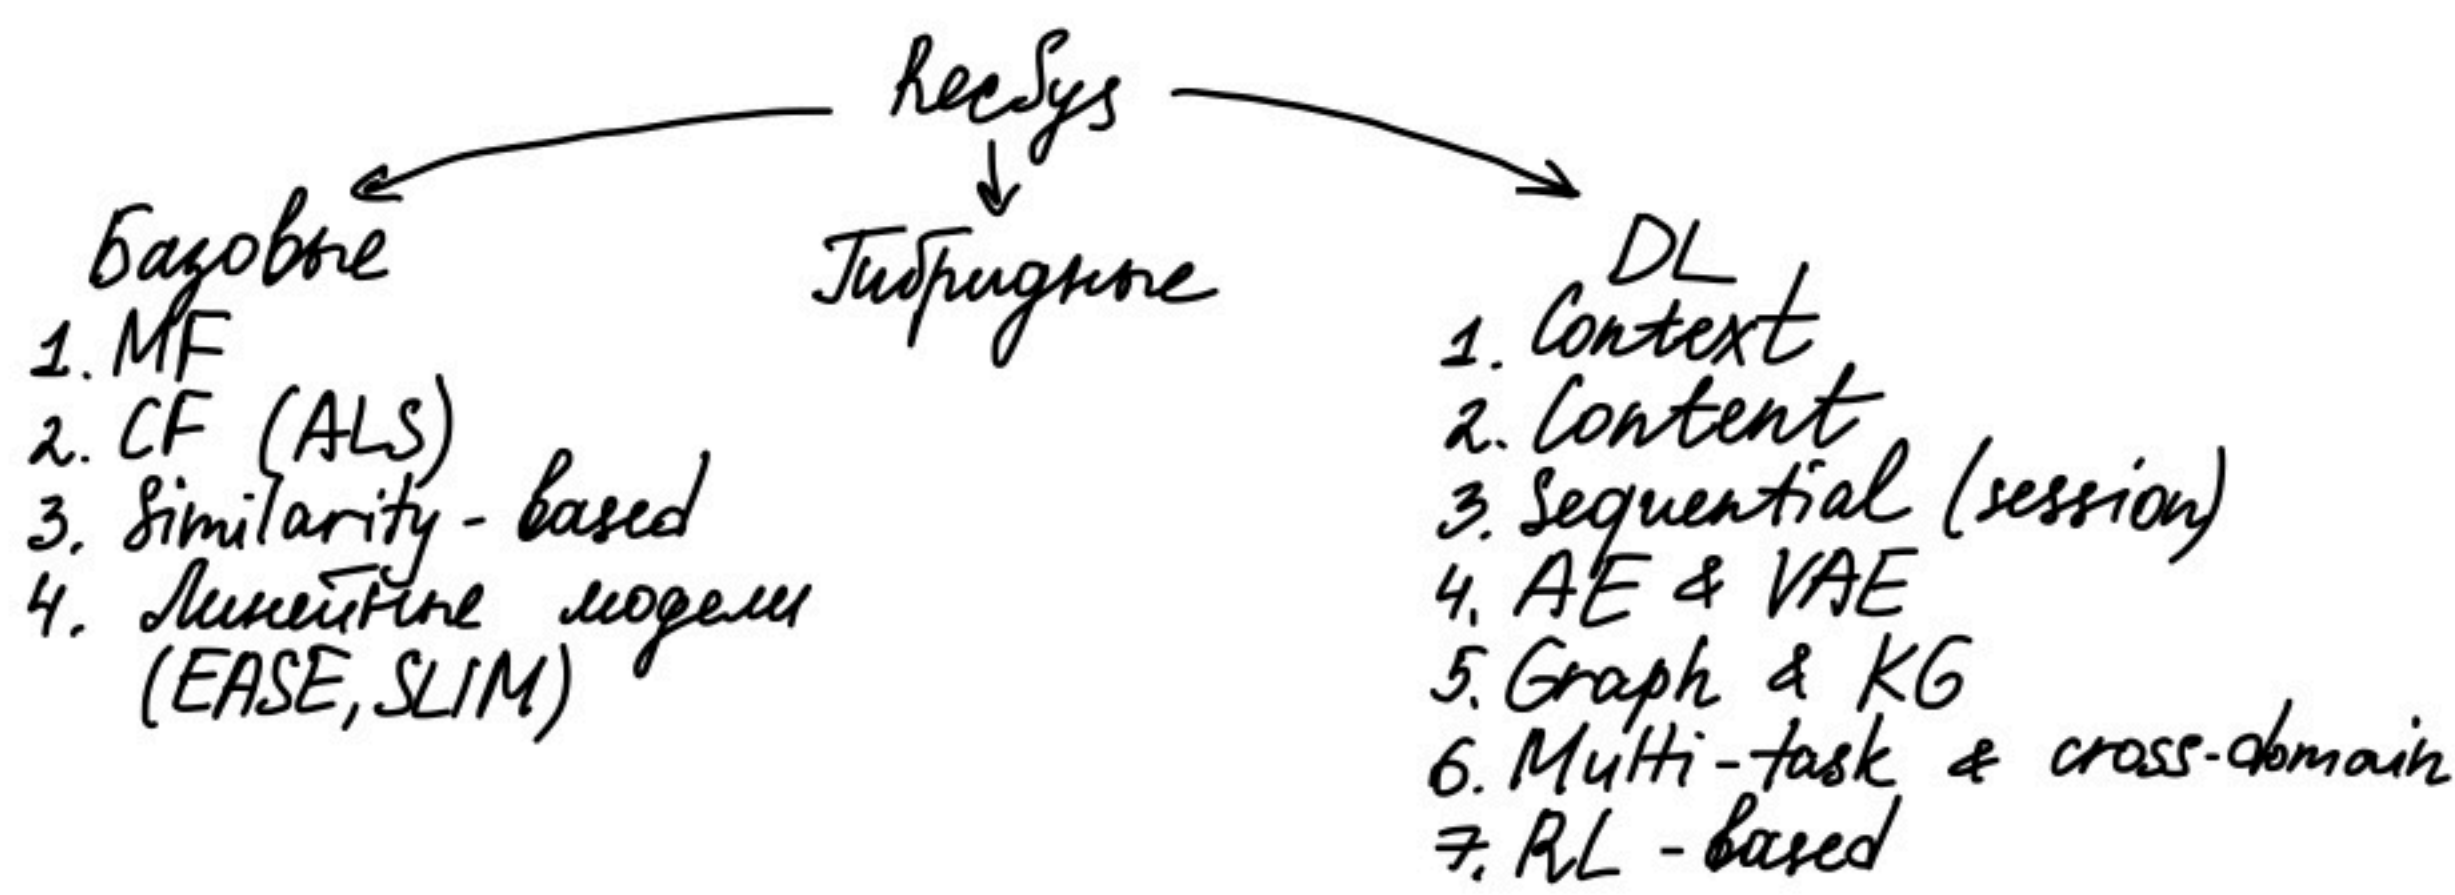 RecSys
Базовые
1. MF
2. CF (ALS)
3. Similarity-based
4. Линейные модели
(EASE, SLIM)
Гибридные
DL
1. Context
2. Content
3. Sequential (session)
4. AE & VAE
5. Graph & KG
6. Multi-task & cross-domain
7. RL-based